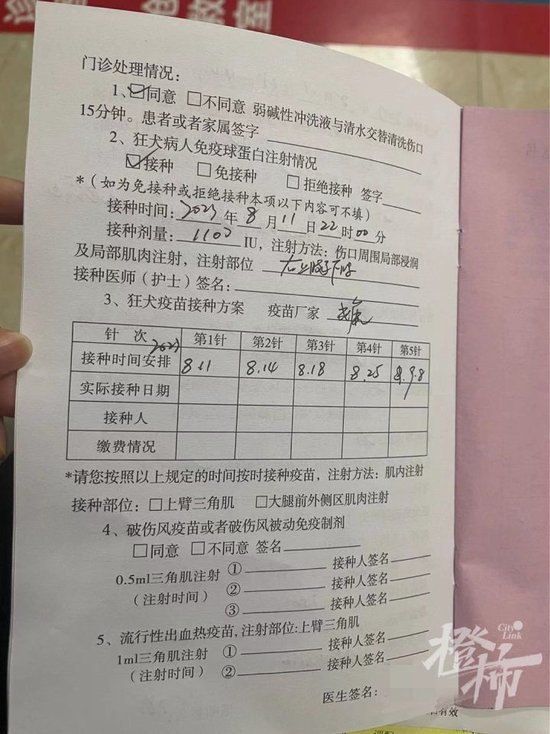 门诊处理情况：
1、☑同意 □不同意 弱碱性冲洗液与清水交替清洗伤口
15分钟。患者或者家属签字
2、狂犬病人免疫球蛋白注射情况
☑接种 □免接种 □拒绝接种 签字
*（如为免接种或拒绝接种本项以下内容可不填）
接种时间：2023年8月11日22时00分
接种剂量：1100 IU，注射方法：伤口周围局部浸润
及局部肌肉注射，注射部位
接种医师（护士）签名：
3、狂犬疫苗接种方案 疫苗厂家
针 次 第1针 第2针 第3针 第4针 第5针
接种时间安排 2023 8.11 8.14 8.18 8.25 9.8
实际接种日期
接种人
缴费情况
*请您按照以上规定的时间按时接种疫苗，注射方法：肌内注射
接种部位：□上臂三角肌 □大腿前外侧区肌肉注射
4、破伤风疫苗或者破伤风被动免疫制剂
□同意 □不同意 签名
0.5ml三角肌注射 ① 接种人签名
（注射时间） ② 接种人签名
③ 接种人签名
5、流行性出血热疫苗，注射部位:上臂三角肌
1ml三角肌注射 ① 接种人签名
（注射时间） ② 接种人签名
医生签名：
有效
City Link
橙柿